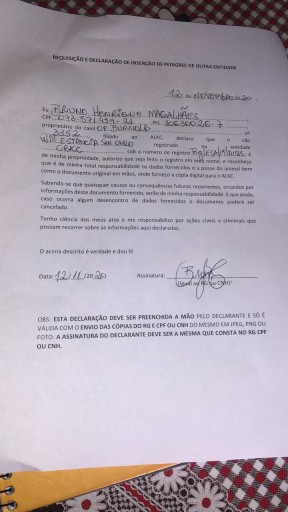 REQUISIÇÃO E DECLARAÇÃO DE INSERÇÃO DE PEDIGREE DE OUTRA ENTIDADE
12 de NOVEMBRO 2020
Eu BRUNO HENRIQUE MAGALHÃES
CPF
proprietário do canil DE BURNOLD nº
33526 filiado ao ALKC, declaro que o cão
ESTANCIA SAN CARLO registrado na entidade
CBKC sob o número de registro
de minha propriedade, autorizo que seja feito o registro em meu nome, e reconheço
que é de minha total responsabilidade os dados fornecidos e a posse do animal bem
como o documento original em mãos, onde forneço a copia digital para o ALKC.
Sabendo-se que quaisquer causas ou consequências futuras recorrentes, oriundos por
informações deste documento fornecido, serão de minha responsabilidade. E que ainda,
caso ocorra algum desencontro de dados fornecidos o documento poderá ser
cancelado.
Tenho ciência meus atos e me responsabilizo por ações cíveis e criminais que
possam recorrer sobre as informações aqui declaradas.
O acima descrito é verdade e dou fé
Data: 12/11/2020 Assinatura:
(igual ao RG ou CNH)
OBS: ESTA DECLARAÇÃO DEVE SER PREENCHIDA A MÃO PELO DECLARANTE E SÓ É
VÁLIDA COM O ENVIO DAS CÓPIAS DO RG E CPF OU CNH DO MESMO EM JPEG, PNG OU
FOTO. A ASSINATURA DO DECLARANTE DEVE SER A MESMA QUE CONSTA NO RG CPF
OU CNH.